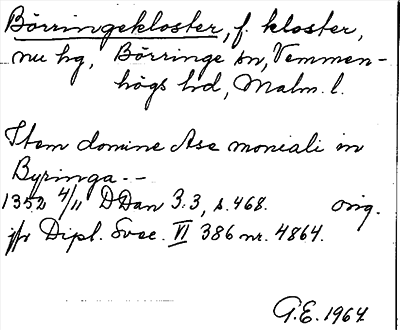 Börringekloster, f. kloster,
nu hg, Börringe sn, Vemmen-
högs hd, Malm. l.
Item domine Ase moniali in
Byringa--
1352 4/11 DDan 3:3, s. 468. orig.
jfr Dipl. Svec. VI 386 nr. 4864.
G.E. 1964